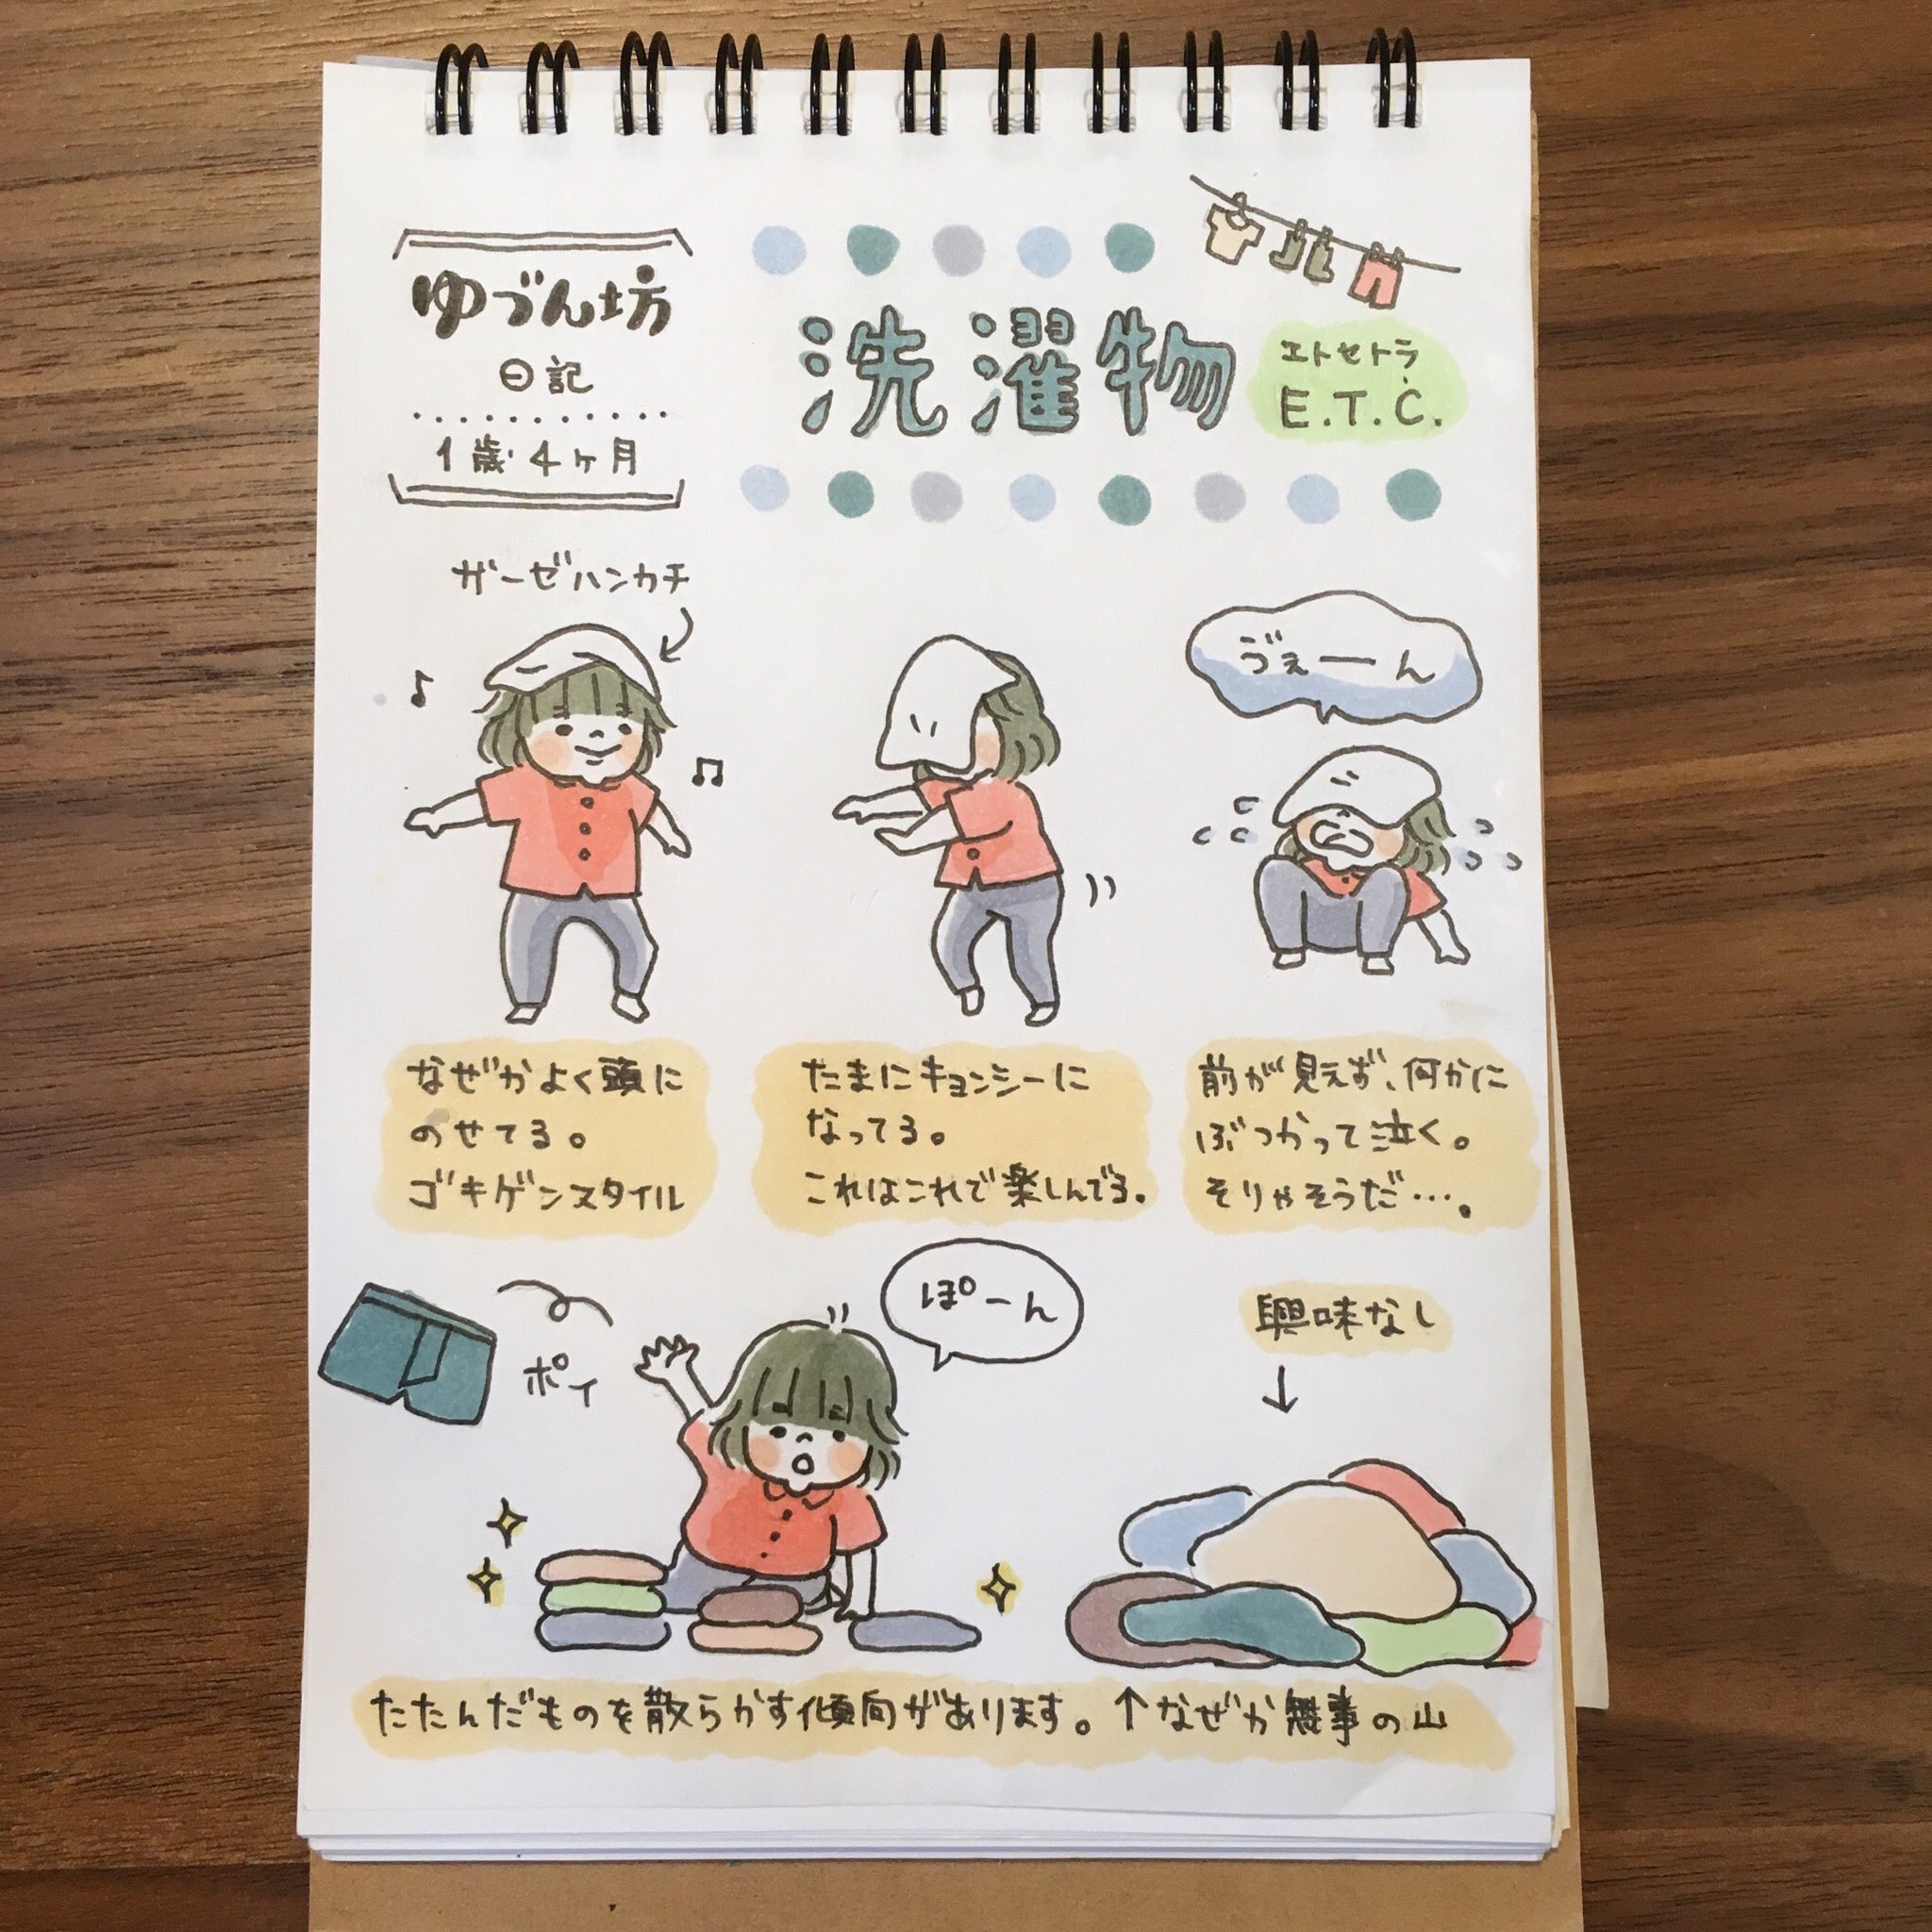 ゆづん坊
日記
1歳4ヶ月
洗濯物
エトセトラ
E.T.C.
ガーゼハンカチ
なぜかよく頭に
のせてる。
ゴキゲンスタイル
たまにキョンシーに
なってる。
これはこれで楽しんでる。
ゔぇーん
前が見えず、何かに
ぶつかって泣く。
そりゃそうだ…。
ポイ
ぽーん
興味なし
↓
たたんだものを散らかす傾向があります。↑なぜか無事の山